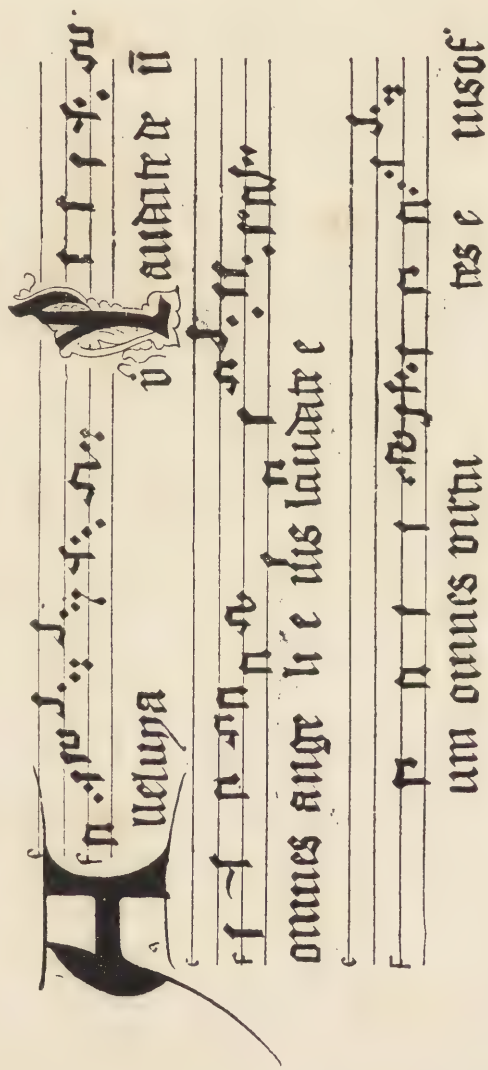 Alleluya ℣ Laudate de ū
omnes ange li e ius laudate e
um omnes virtu tes e iusof